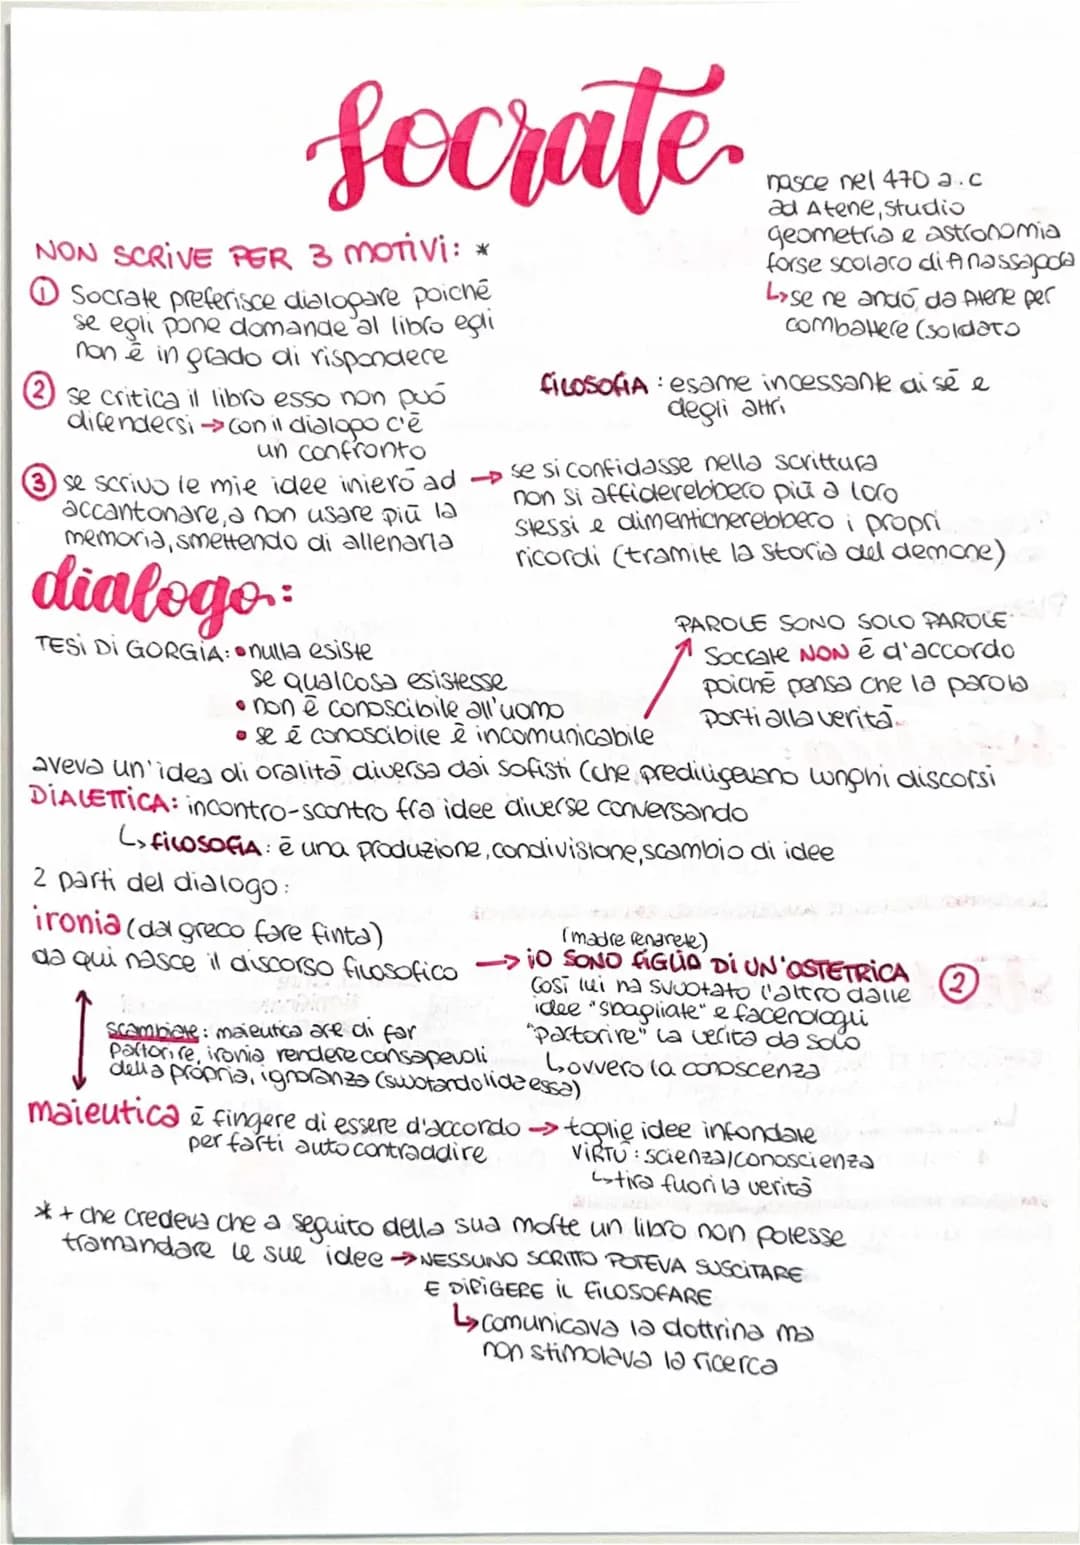 Socrate
nasce nel 470 a.c
ad Atene, studio
geometria e astronomia
forse scolaro di Anassagora
↳se ne andó, da Atene per
combattere (soldato
NON SCRIVE PER 3 MOTIVI: *
① Socrate preferisce dialogare poiché
se egli pone domande al libro egli
non é in grado di rispondere
② se critica il libro esso non puó
difendersi → con il dialogo c'é
un confronto
FILOSOFIA : esame incessante di sé e
degli altri
③ se scrivo le mie idee inieró ad →
accantonare, a non usare piú la
memoria, smettendo di allenarla
se si confidasse nella scrittura
non si affiderebbero piú a loro
stessi e dimenticherebbero i propri
ricordi (tramite la storia del demone)
dialogo:
TESI DI GORGIA: • nulla esiste
se qualcosa esistesse
• non é conoscibile all'uomo
• se é conoscibile é incomunicabile
PAROLE SONO SOLO PAROLE
Socrate NON é d'accordo
poiché pensa che la parola
porti alla veritá
aveva un'idea di oralitá diversa dai sofisti (che prediligevano lunghi discorsi
DIALETTICA: incontro-scontro fra idee diverse conversando
↳ FILOSOFIA: é una produzione, condivisione, scambio di idee
2 parti del dialogo:
ironia (dal greco fare finta)
da qui nasce il discorso filosofico →
(madre Fenarete)
IO SONO FIGLIA DI UN'OSTETRICA ②
cosí lui ha svuotato l'altro dalle
idee "sbagliate" e facendogli
"partorire" la veritá da solo
↳ ovvero la conoscenza
scambiate: maieutica arte di far
partorire, ironia rendere consapevoli
della propria, ignoranza (svuotando l'idea essa)
maieutica é fingere di essere d'accordo → toglie idee infondate
per farti auto contraddire
VIRTÚ : scienza/conoscienza
↳tira fuori la veritá
* + che credeva che a seguito della sua morte un libro non potesse
tramandare le sue idee → NESSUNO SCRITTO POTEVA SUSCITARE
E DIRIGERE IL FILOSOFARE
↳ comunicava la dottrina ma
non stimolava la ricerca